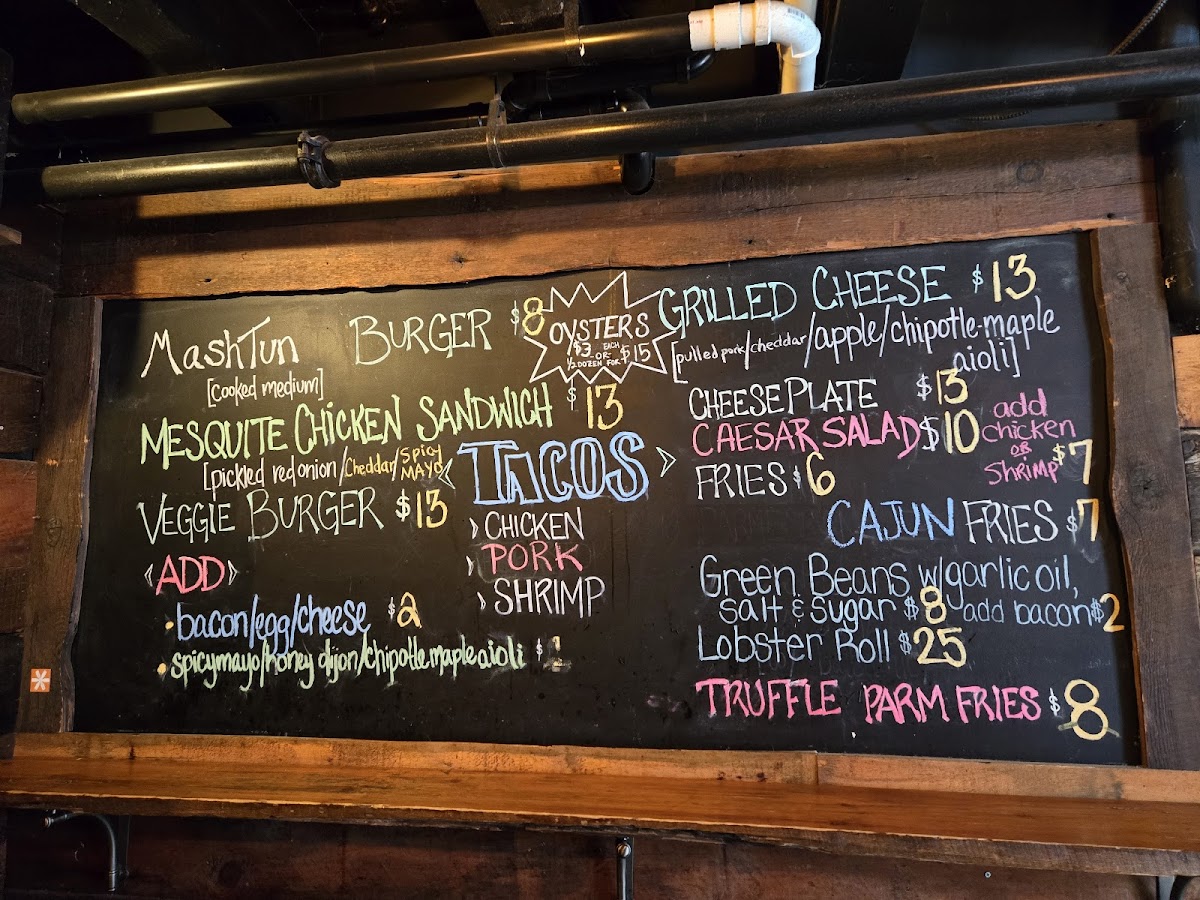 MashTun BURGER $8
[cooked medium]
MESQUITE CHICKEN SANDWICH $13
[pickled red onion/Cheddar/SPICY
MAYO
VEGGIE BURGER $13
ADD
• bacon/egg/cheese $2
• spicymayo/honey dijon/chipotle maple aioli $1
OYSTERS
$3 EACH
-OR-
½ DOZEN FOR $15
TACOS
CHICKEN
PORK
SHRIMP
GRILLED CHEESE $13
[pulled pork/cheddar/apple/chipotle-maple
aioli]
CHEESE PLATE $13
CAESAR SALAD $10
add
chicken
OR
Shrimp $7
FRIES $6
CAJUN FRIES $7
Green Beans w/garlic oil,
salt & sugar $8 add bacon $2
Lobster Roll $25
TRUFFLE PARM FRIES $8